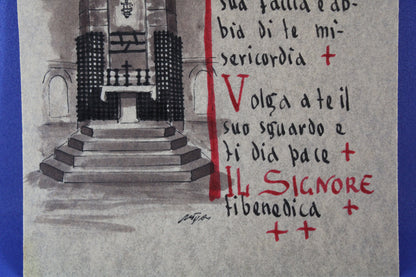 sua faccia e ab-
bia di te mi-
sericordia +
Volga a te il
suo sguardo e
ti dia pace +
IL SIGNORE
ti benedica +
+ +